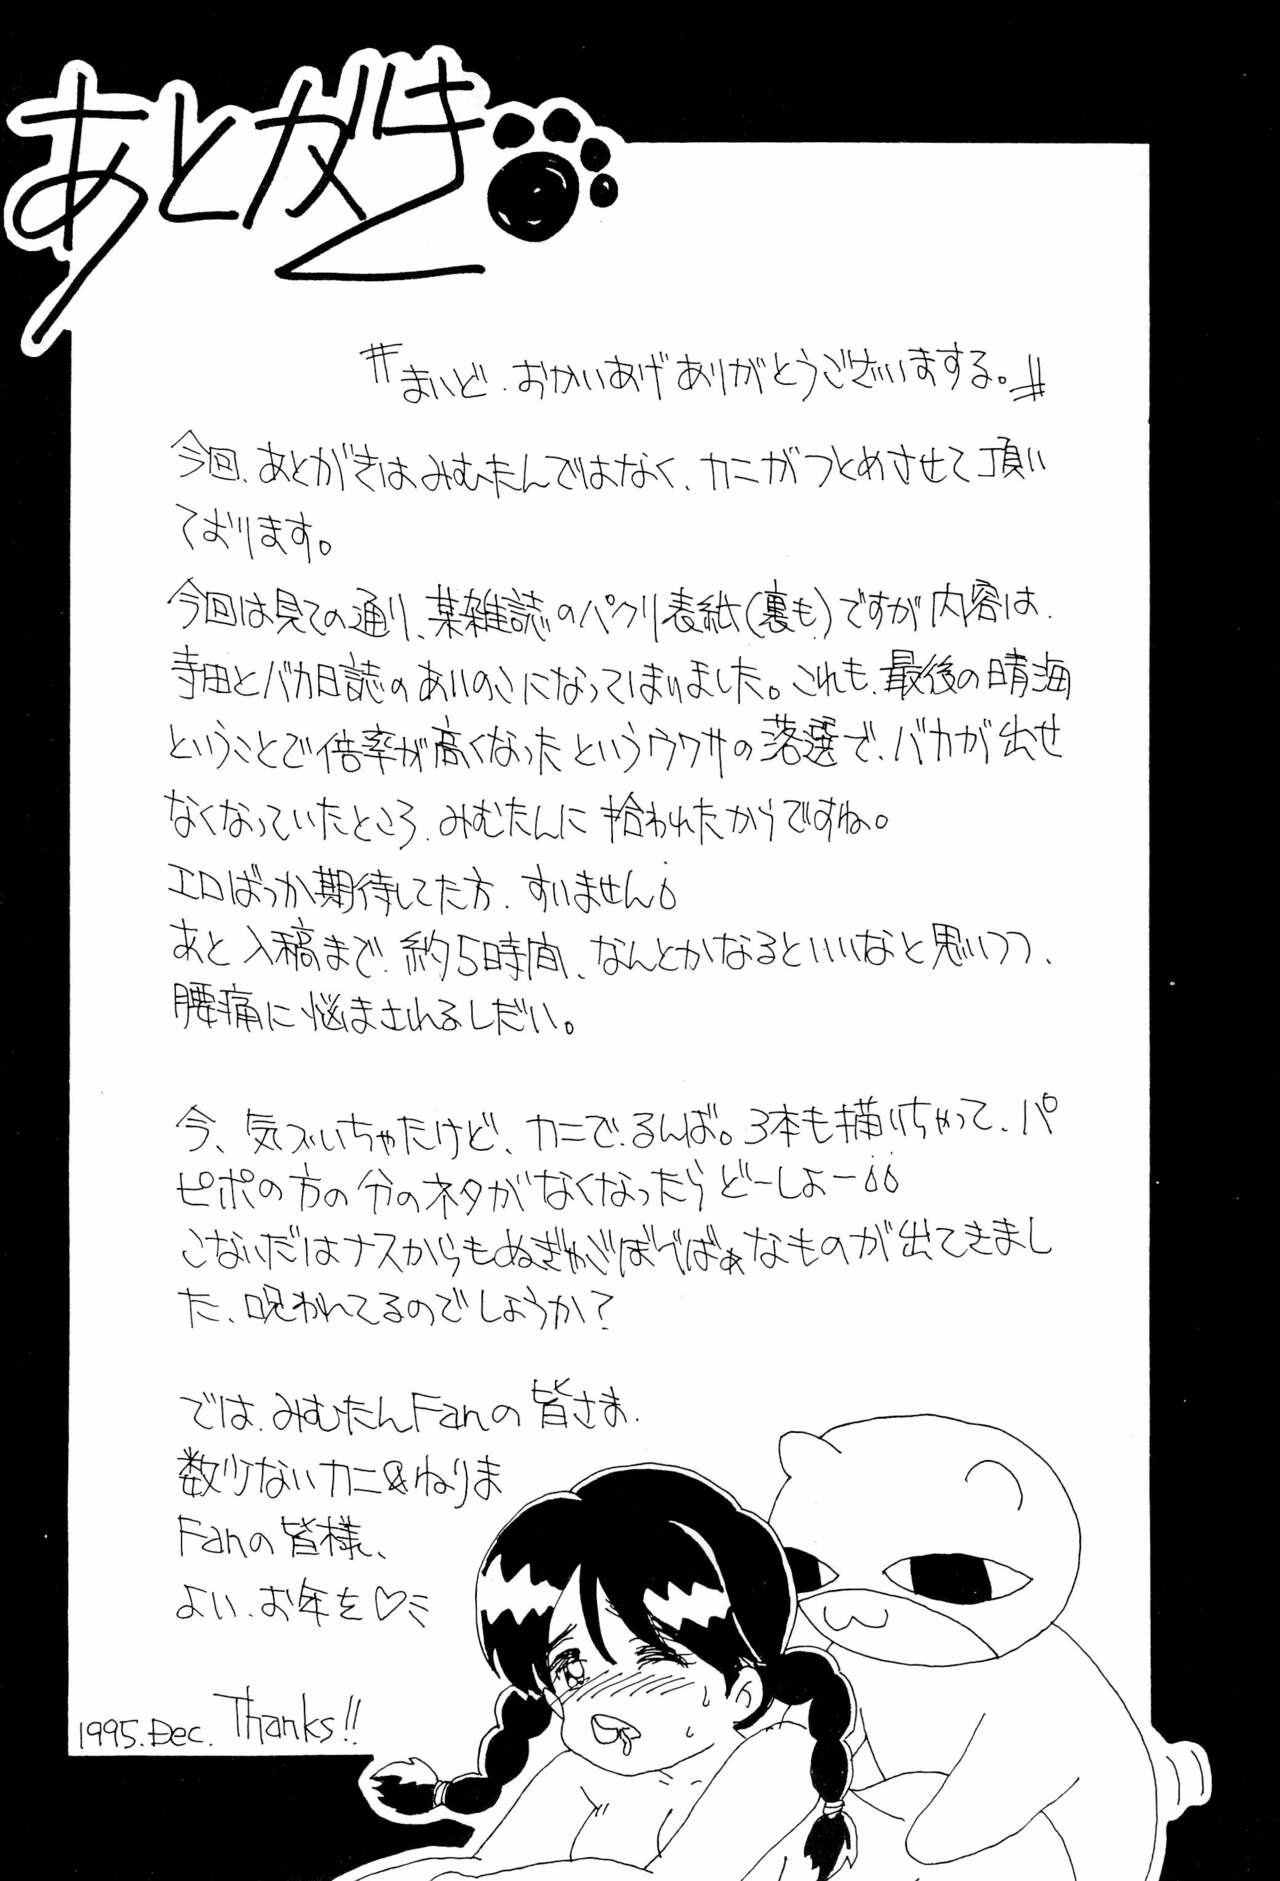 あとがき
〝まいど、おかいあげありがとうございまする。〟
今回、あとがきはみむたんではなく、カニがつとめさせて頂い
ております。
今回は見ての通り、某雑誌のパクリ表紙(裏も)ですが内容は、
寺田とバカ日誌のあいのこになってしまいました。これも、最後の晴海
ということで倍率が高くなったというウワサの落選で、バカが出せ
なくなっていたところ、みむたんに拾われたからですね。
エロばっか期待してた方、すいません
あと入稿まで、約5時間、なんとかなるといいなと思いつつ、
腰痛に悩まされるしだい。
今、気づいちゃたけど、カニで、るんば。3本も描いちゃって、パ
ピポの方の分のネタがなくなったらどーしょー
こないだはナスからもぬぎゃごぼべばぁなものが出てきまし
た、呪われてるのでしょうか?
では、みむたんFanの皆さま、
数少ないカニ&ねりま
Fanの皆様、
よい、お年を♡ミ
1995.Dec. Thanks!!